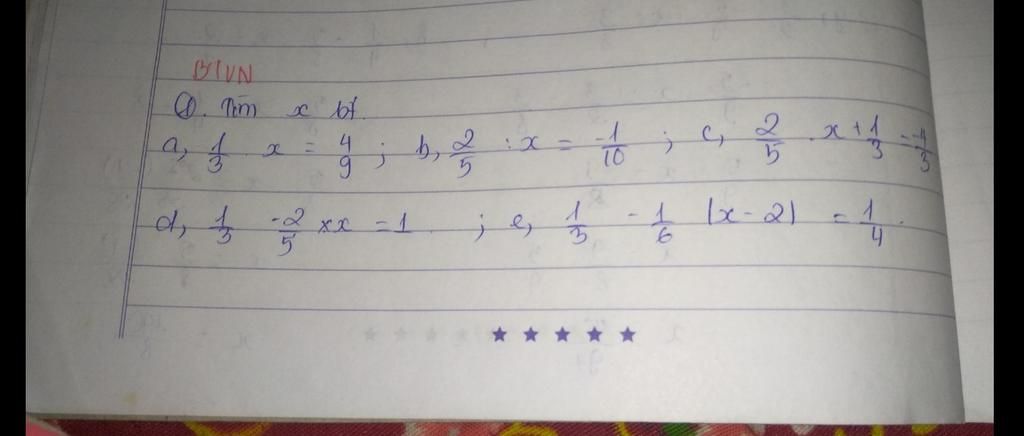 BTVN
①. Tìm x bt
a, 1/3 . x = 4/9 ; b, 2/5 : x = -1/10 ; c, 2/5 . x + 1/3 = -4/3
d, 1/3 - 2/5 × x = 1 ; e, 1/3 - 1/6 |x - 2| = 1/4.